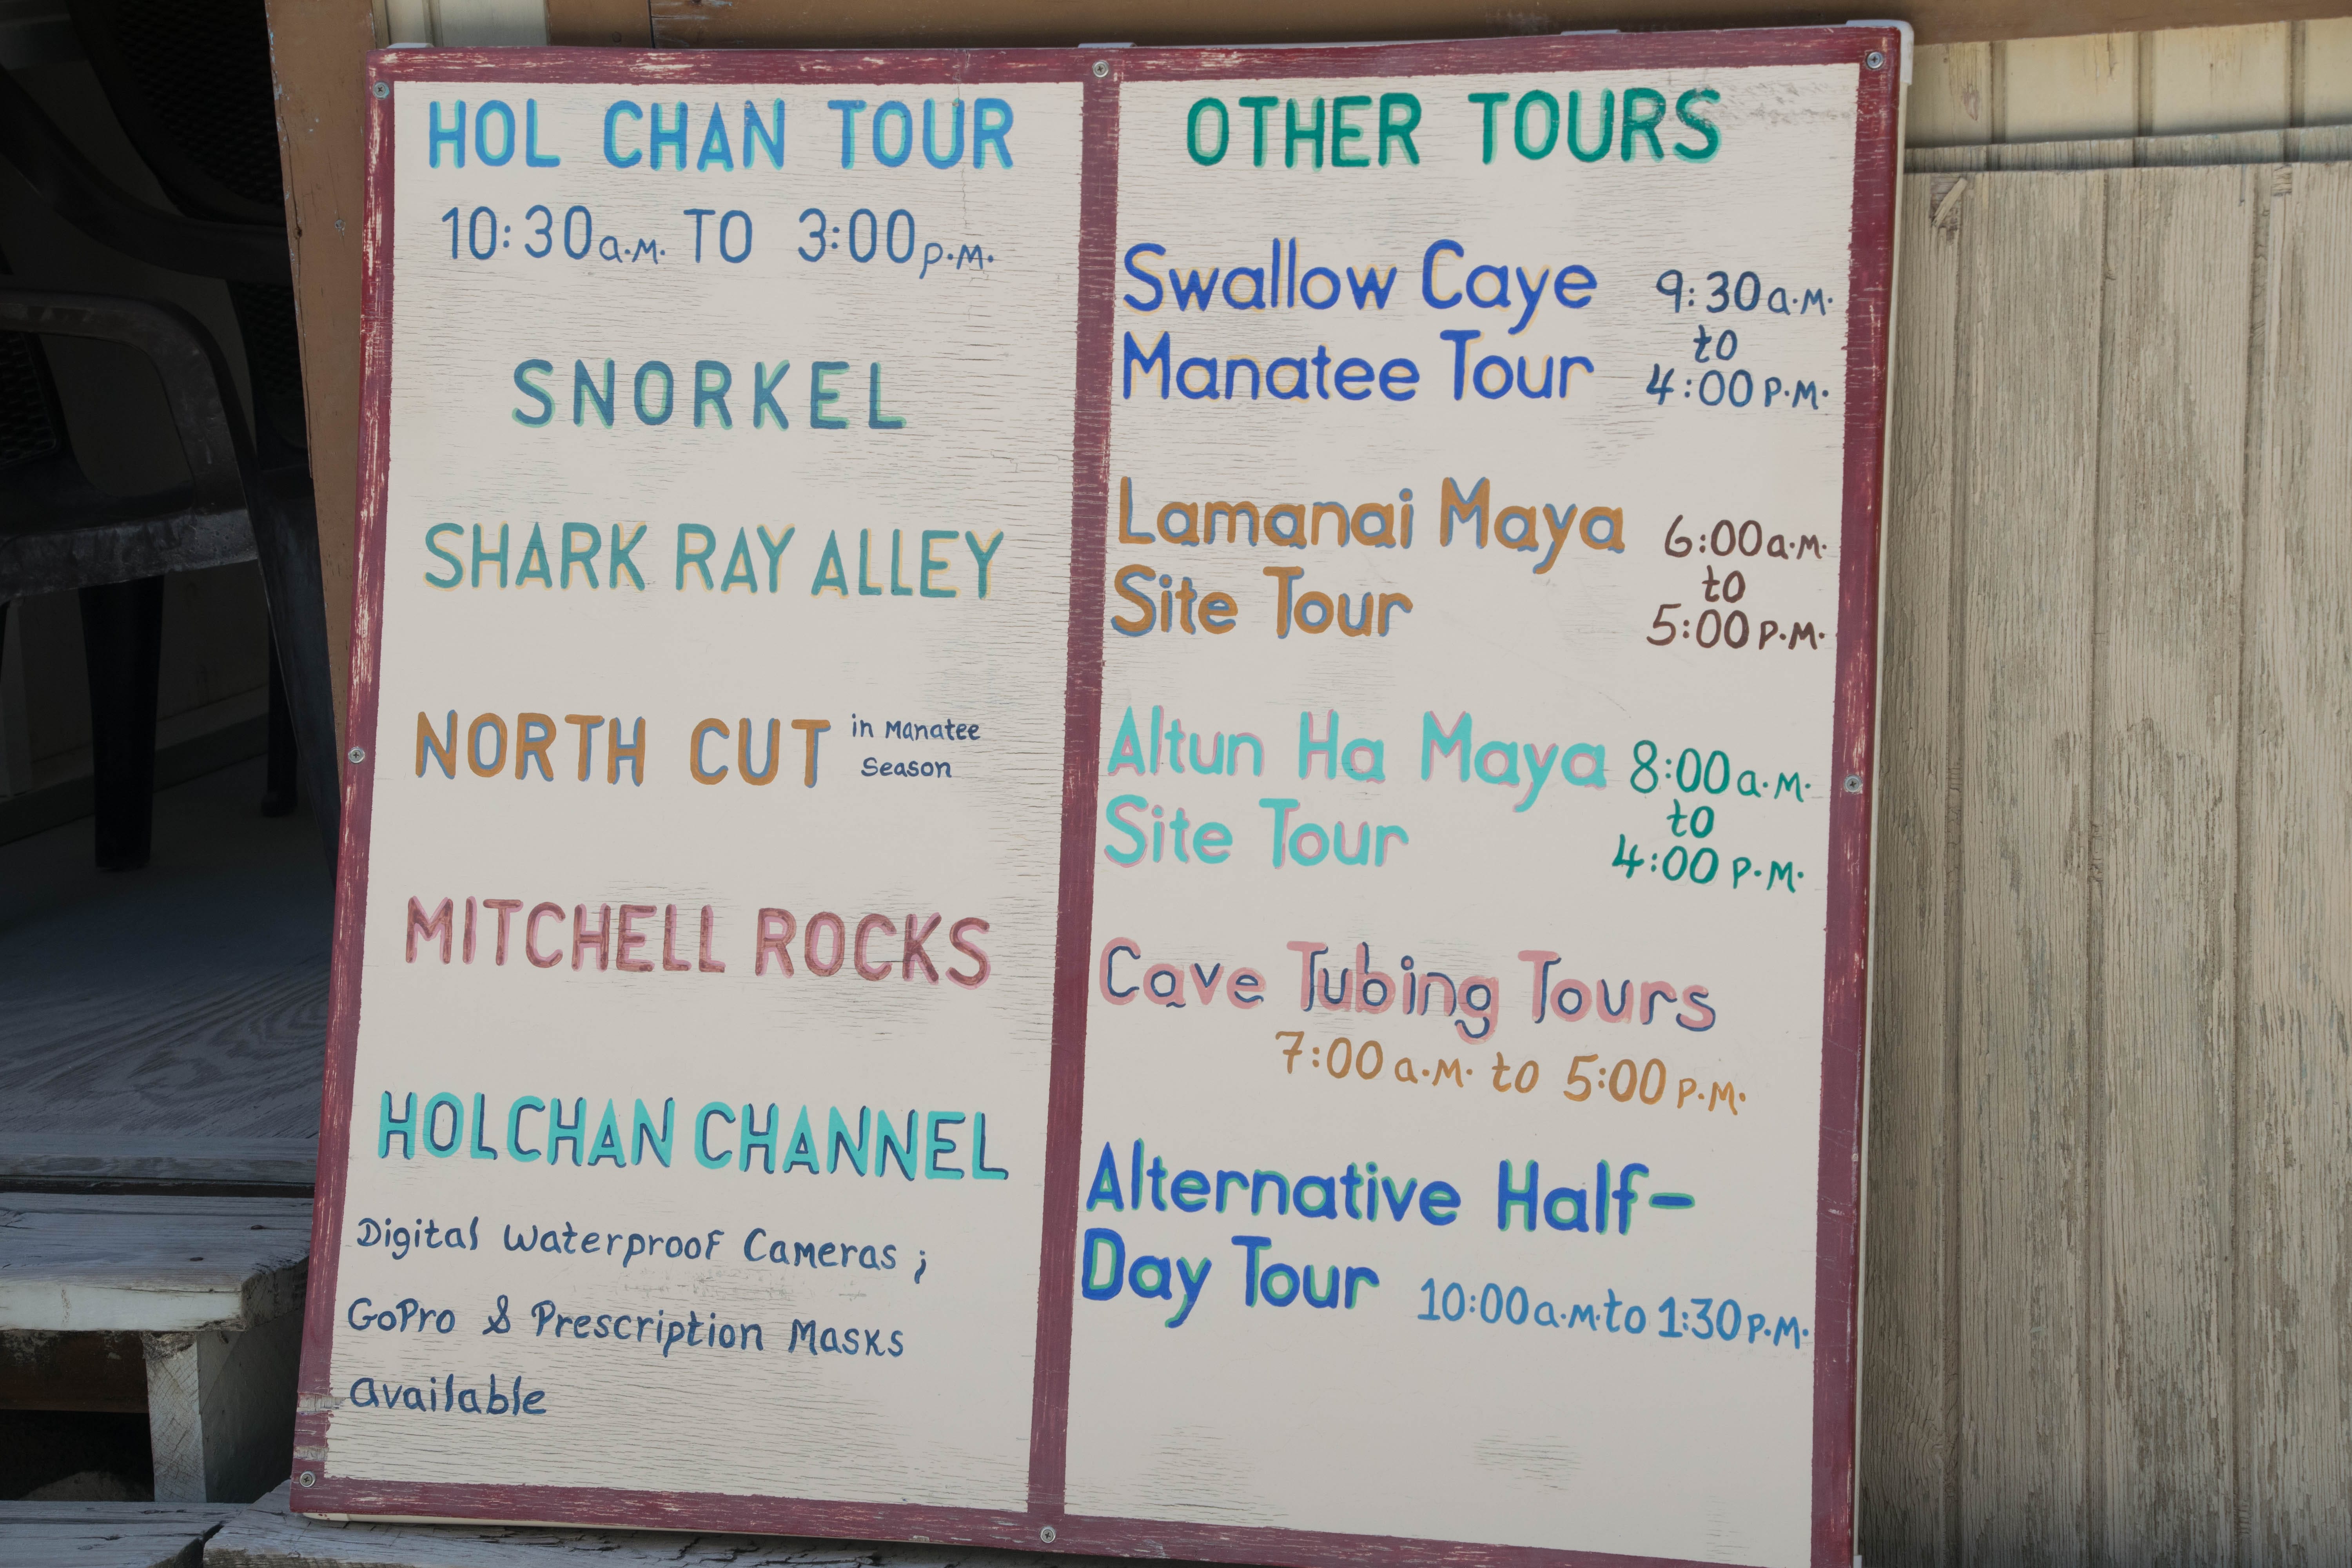 HOL CHAN TOUR
10:30 a.m. TO 3:00 p.m.
SNORKEL
SHARK RAY ALLEY
NORTH CUT in Manatee
Season
MITCHELL ROCKS
HOLCHAN CHANNEL
Digital Waterproof Cameras ;
GoPro & Prescription Masks
available
OTHER TOURS
Swallow Caye 9:30 a.m.
to
Manatee Tour 4:00 P.M.
Lamanai Maya 6:00 a.m.
to
Site Tour 5:00 P.M.
Altun Ha Maya 8:00 a.m.
to
Site Tour 4:00 P.M.
Cave Tubing Tours
7:00 a.m. to 5:00 P.M.
Alternative Half-
Day Tour 10:00 a.m. to 1:30 P.M.